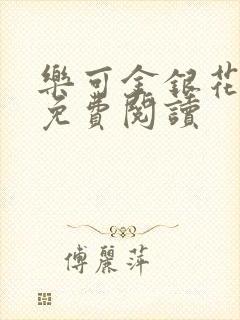 樂可金銀花
免費閱讀
傅麗萍